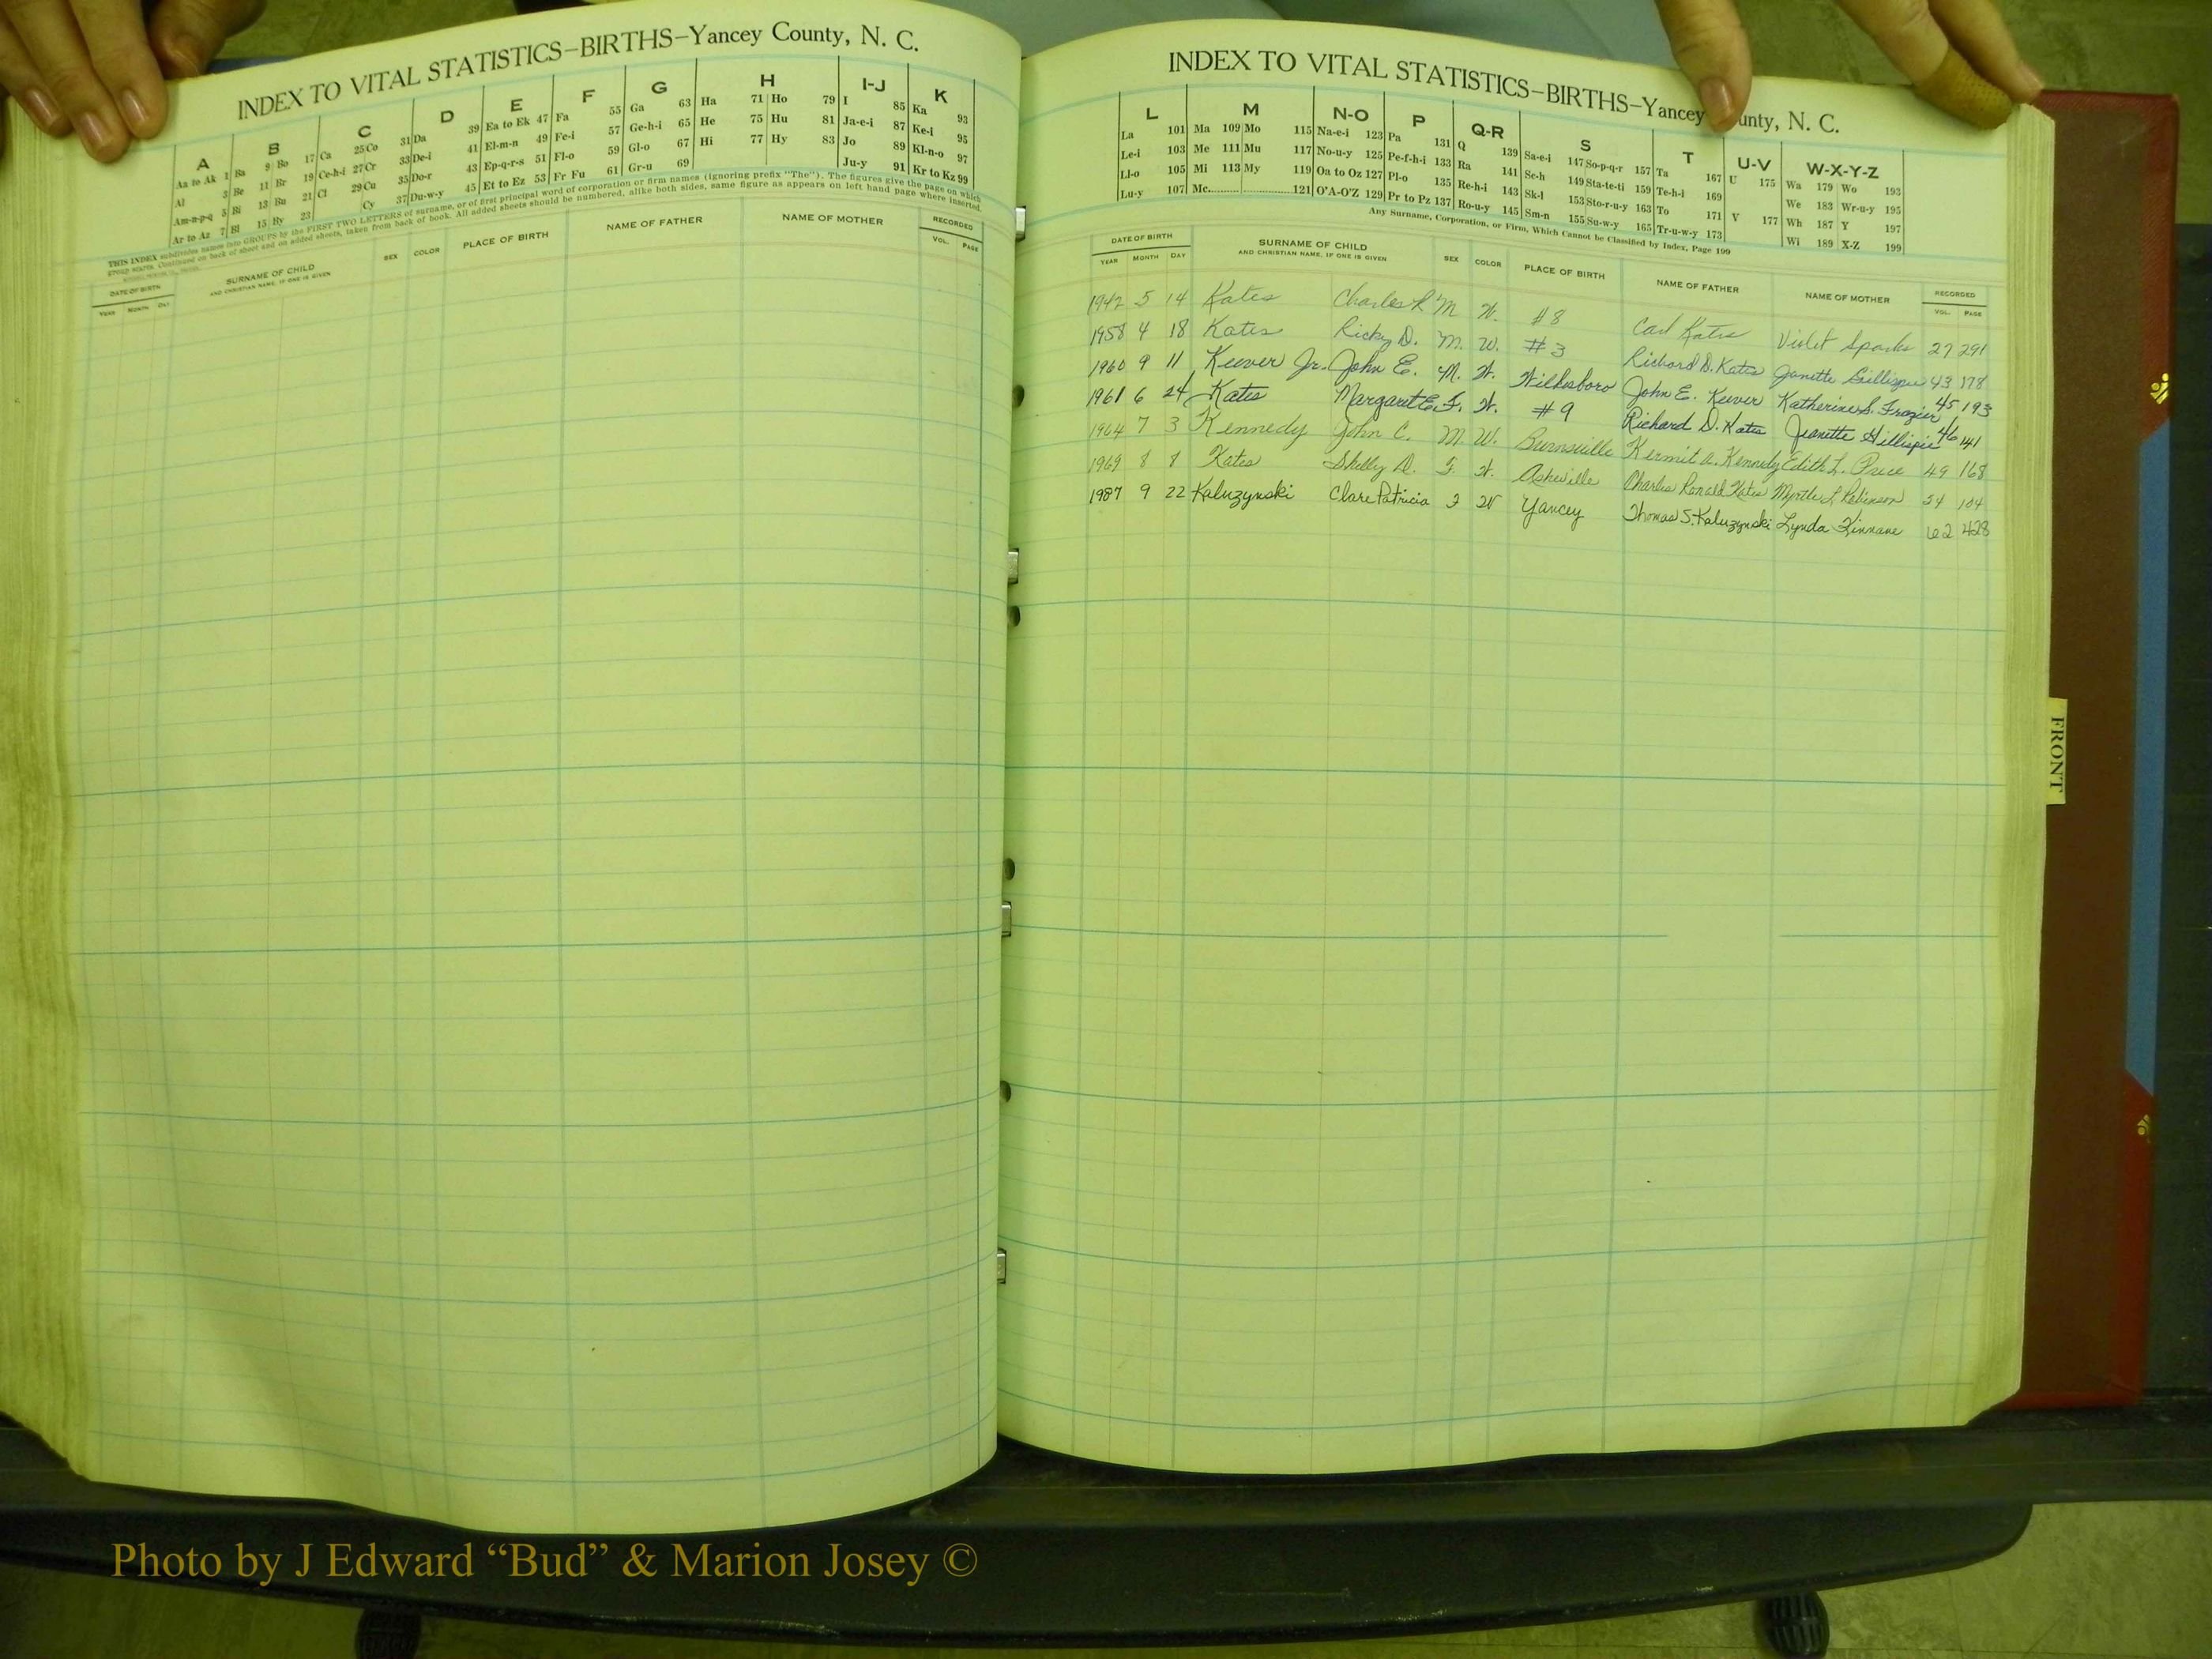 INDEX TO VITAL STATISTICS—BIRTHS—Yancey County, N. C.
A B C D E F G H I-J K
Aa to Ak 1 Ba 9 Bo 17 Ca 25 Co 31 Da 39 Ea to Ek 47 Fa 55 Ga 63 Ha 71 Ho 79 I 85 Ka 93
Al 3 Be 11 Br 19 Ce-h-i 27 Cr 33 De-i 41 El-m-n 49 Fe-i 57 Ge-h-i 65 He 75 Hu 81 Ja-e-i 87 Ke-i 95
Am-n-p-q 5 Bi 13 Bu 21 Cl 29 Cu 35 Do-r 43 Ep-q-r-s 51 Fl-o 59 Gl-o 67 Hi 77 Hy 83 Jo 89 Kl-n-o 97
Ar to Az 7 Bl 15 By 23 Cy 37 Du-w-y 45 Et to Ez 53 Fr Fu 61 Gr-u 69 Ju-y 91 Kr to Kz 99
THIS INDEX subdivides names into GROUPS by the FIRST TWO LETTERS of surname, or of first principal word of corporation or firm names (ignoring prefix "The"). The figures give the page on which
group starts. Continued on back of sheet and on added sheets, taken from back of book. All added sheets should be numbered, alike both sides, same figure as appears on left hand page where inserted.
DATE OF BIRTH SURNAME OF CHILD SEX COLOR PLACE OF BIRTH NAME OF FATHER NAME OF MOTHER RECORDED
YEAR MONTH DAY AND CHRISTIAN NAME, IF ONE IS GIVEN VOL. PAGE
INDEX TO VITAL STATISTICS—BIRTHS—Yancey unty, N. C.
L M N-O P Q-R S T U-V W-X-Y-Z
La 101 Ma 109 Mo 115 Na-e-i 123 Pa 131 Q 139 Sa-e-i 147 So-p-q-r 157 Ta 167 U 175 Wa 179 Wo 193
Le-i 103 Me 111 Mu 117 No-u-y 125 Pe-f-h-i 133 Ra 141 Sc-h 149 Sta-te-ti 159 Te-h-i 169 We 183 Wr-u-y 195
Ll-o 105 Mi 113 My 119 Oa to Oz 127 Pl-o 135 Re-h-i 143 Sk-l 153 Sto-r-u-y 163 To 171 V 177 Wh 187 Y 197
Lu-y 107 Mc 121 O'A-O'Z 129 Pr to Pz 137 Ro-u-y 145 Sm-n 155 Su-w-y 165 Tr-u-w-y 173 Wi 189 X-Z 199
Any Surname, Corporation, or Firm, Which Cannot be Classified by Index, Page 199
DATE OF BIRTH SURNAME OF CHILD SEX COLOR PLACE OF BIRTH NAME OF FATHER NAME OF MOTHER RECORDED
YEAR MONTH DAY AND CHRISTIAN NAME, IF ONE IS GIVEN VOL. PAGE
1942 5 14 Kates Charles R M W. #8 Carl Kates Violet Sparks 27 291
1958 4 18 Kates Ricky D. M. W. #3 Richard D. Kates Janette Gillispie 43 178
1960 9 11 Keever Jr. John E. M. W. Wilkesboro John E. Keever Katherine S. Frazier 45 193
1961 6 24 Kates Margaret E. F. W. #9 Richard D. Kates Jeanette Gillispie 46 141
1964 7 3 Kennedy John C. M W. Burnsville Kermit A. Kennedy Edith L. Price 49 168
1969 8 8 Kates Shelly D. F. W. Asheville Charles Ronald Kates Myrtle L Robinson 54 104
1987 9 22 Kaluzynski Clare Patricia F W Yancey Thomas S. Kaluzynski Lynda Kinnane 62 428
FRONT
Photo by J Edward “Bud” & Marion Josey ©